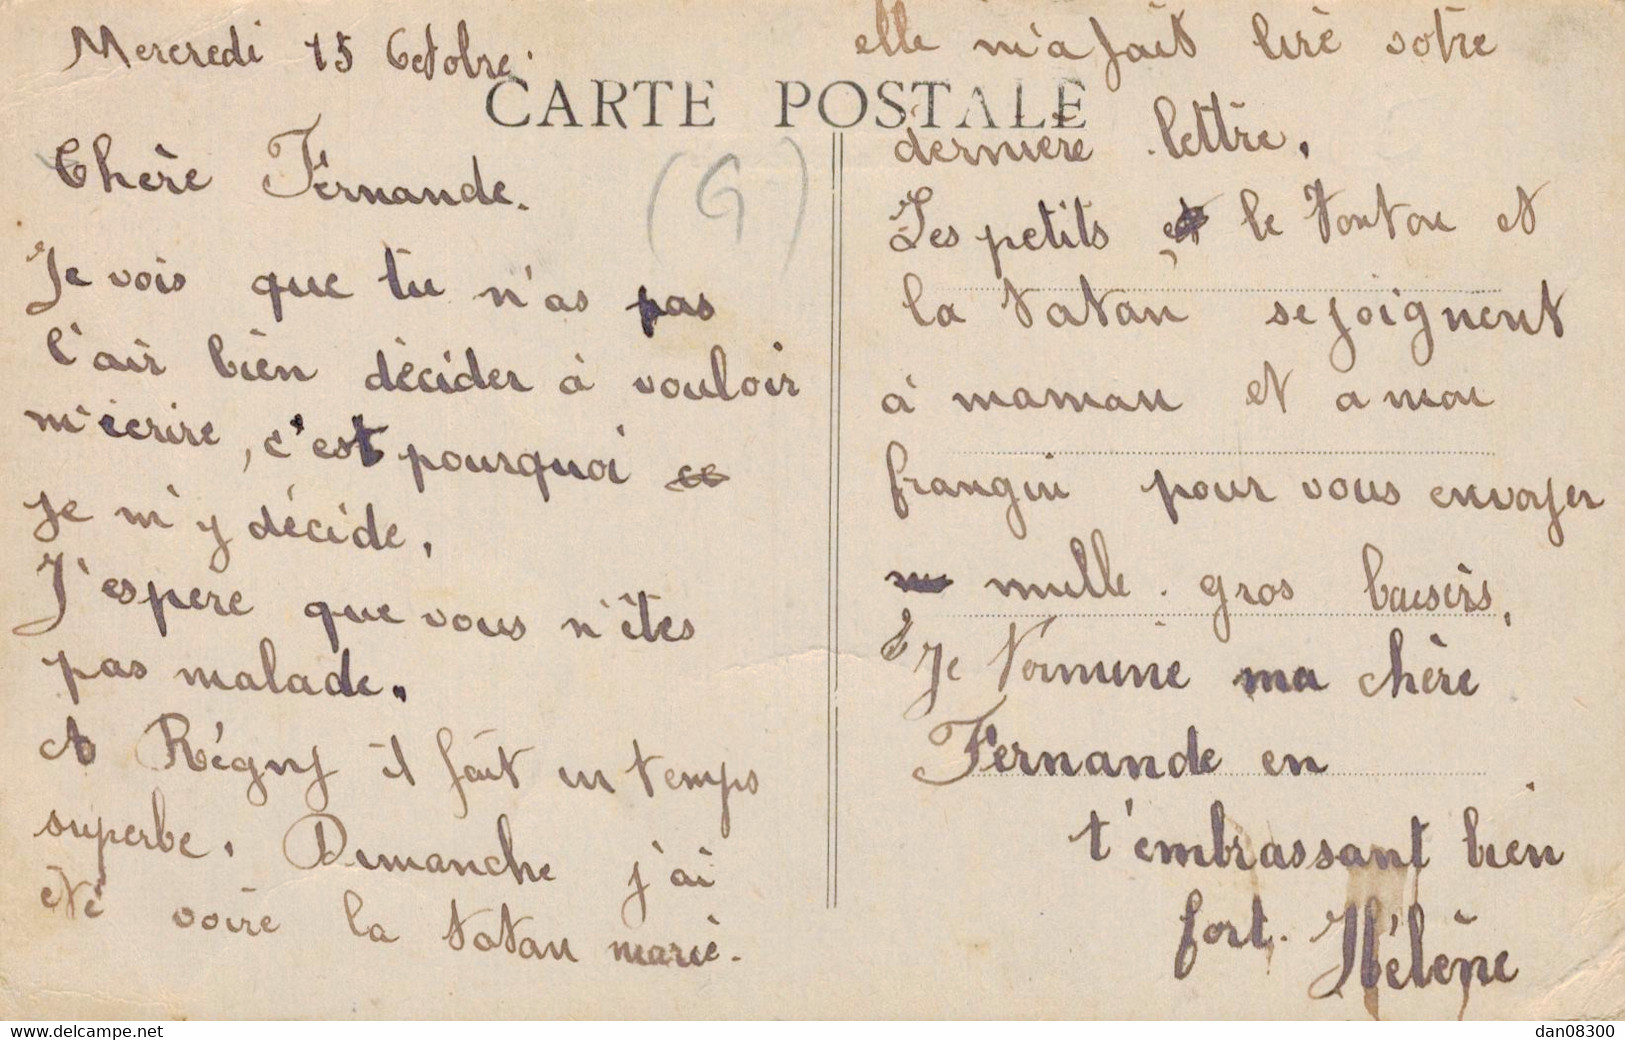 Mercredi 15 Octobre.
CARTE POSTALE
(G)
Chère Fernande.
Je vois que tu n'as pas
l'air bien décider à vouloir
m'écrire, c'est pourquoi
je m'y décide.
J'espere que vous n'êtes
pas malade.
A Régny il fait un temps
superbe. Dimanche j'ai
été voire la tatan marie.
elle m'a fait liré votre
dernière lettre.
Les petits, le tonton et
la tatan se joignent
à maman et a mon
frangin pour vous envoyer
mille gros baisers.
Je termine ma chère
Fernande en
t'embrassant bien
fort. Hélène
delcampe.net
dan08300